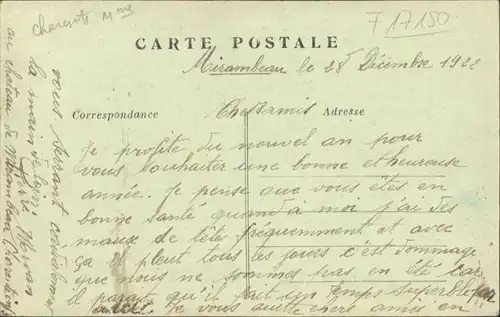 Charente Mme
F17150
CARTE POSTALE
Mirambeau le 28 Décembre 1922
Correspondance
Adresse
Chers amis
Je profite du nouvel an pour
vous souhaiter une bonne et heureuse
année. Je pense que vous êtes en
bonne santé quand à moi j'ai des
maux de tête fréquemment et avec
ça il pleut tous les jours c'est dommage
que nous ne sommes pas en été car
il parait qu'il fait un temps superbe par
ici. Je vous quitte chers amis en
vous serrant cordialement
la main
au chateau de Mirambeau Charente